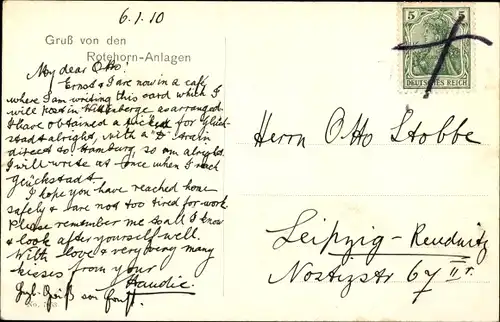 6.1.10
Gruß von den
Rotehorn-Anlagen
My dear Otto!
Ernst & I are now in a café
where I am writing this card which I
will post in Wittenberge as arranged.
I have obtained a ticket for Glück-
stadt alright, with a "D" train
direct to Hamburg, so am alright.
I will write at once when I reach
Glückstadt.
I hope you have reached home
safely & are not too tired for work.
Please remember me to all I know
& look after yourself well.
With love & very very many
kisses from your
5
5
DEUTSCHES REICH
Herrn Otto Stobbe
Leipzig-Reudnitz
Nostizstr 67 II r.